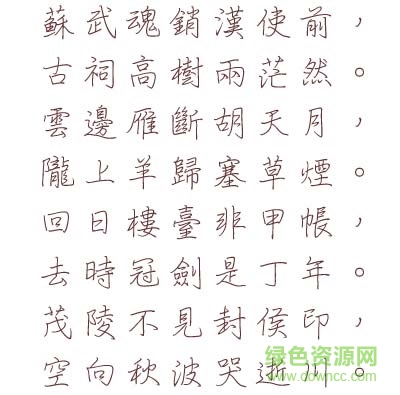 蘇武魂銷漢使前，
古祠高樹兩茫然。
雲邊雁斷胡天月，
隴上羊歸塞草煙。
回日樓臺非甲帳，
去時冠劍是丁年。
茂陵不見封侯印，
空向秋波哭逝川。
绿色资源网
www.downcc.com